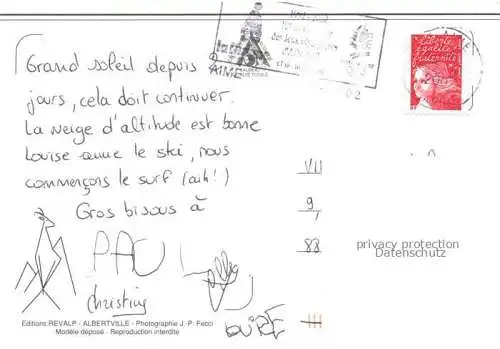 Grand soleil depuis 2
jours, cela doit continuer.
La neige d'altitude est bonne
Louise aime le ski, nous
commençons le surf (aïh!)
Gros bisous à
PAUL
christine
LOUISE
Liberté
égalité
fraternité
VII
9,
88
privacy protection
Datenschutz
Editions REVALP - ALBERTVILLE - Photographie J.-P. Fecci
Modèle déposé - Reproduction interdite